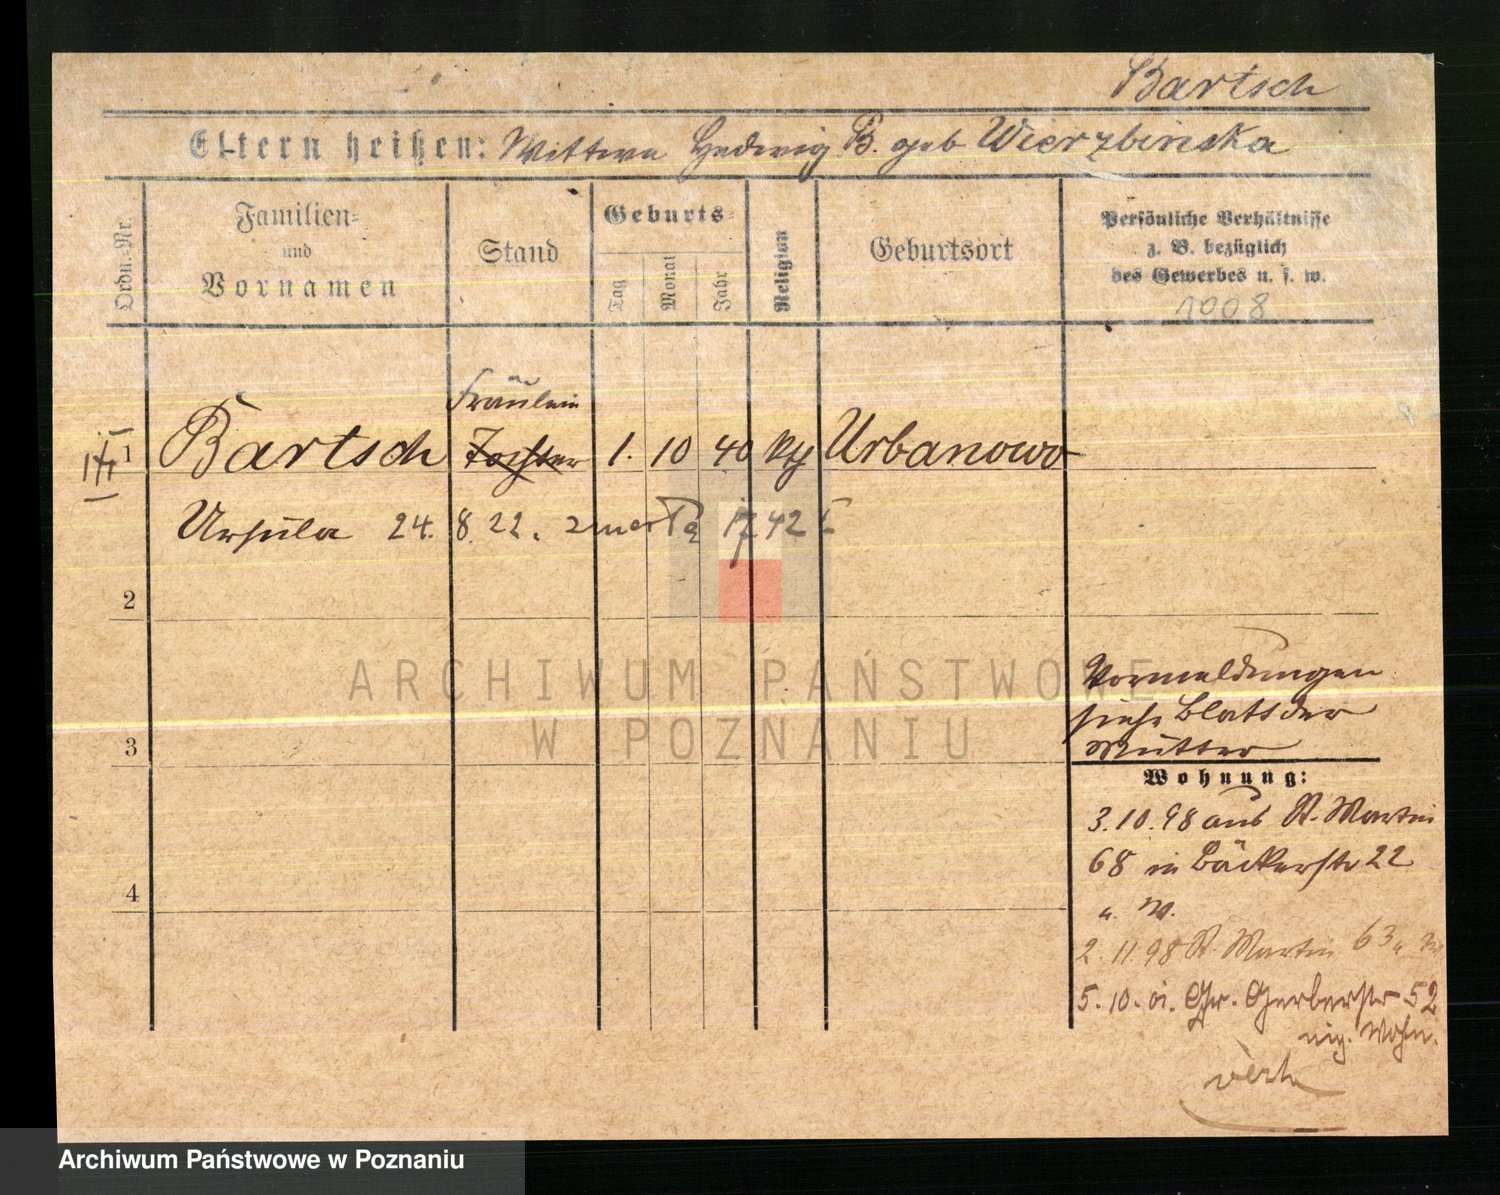 Bartsch
Eltern heißen: Wittwe Hedwig B. geb Wierzbińska
Ordn.-Nr.
Familien-
und
Vornamen
Stand
Geburts-
Tag
Monat
Jahr
Religion
Geburtsort
Persönliche Verhältnisse
z. B. bezüglich
des Gewerbes u. s. w.
1008
Fräulein
1 Bartsch Tochter 1. 10 40 Urbanowo
Ursula 24. 8. 22. 1742
2
ARCHIWUM PAŃSTWOWE
W POZNANIU
Vormeldungen
siehe Blatt der
3 Mutter
Wohnung:
3.10.98 aus St. Martin
68 in Bäckerstr 22
4
u. W.
2.11.98 St. Martin 63
5.10.01. Gr. Gerberstr 52
eig. Wohn.
Archiwum Państwowe w Poznaniu